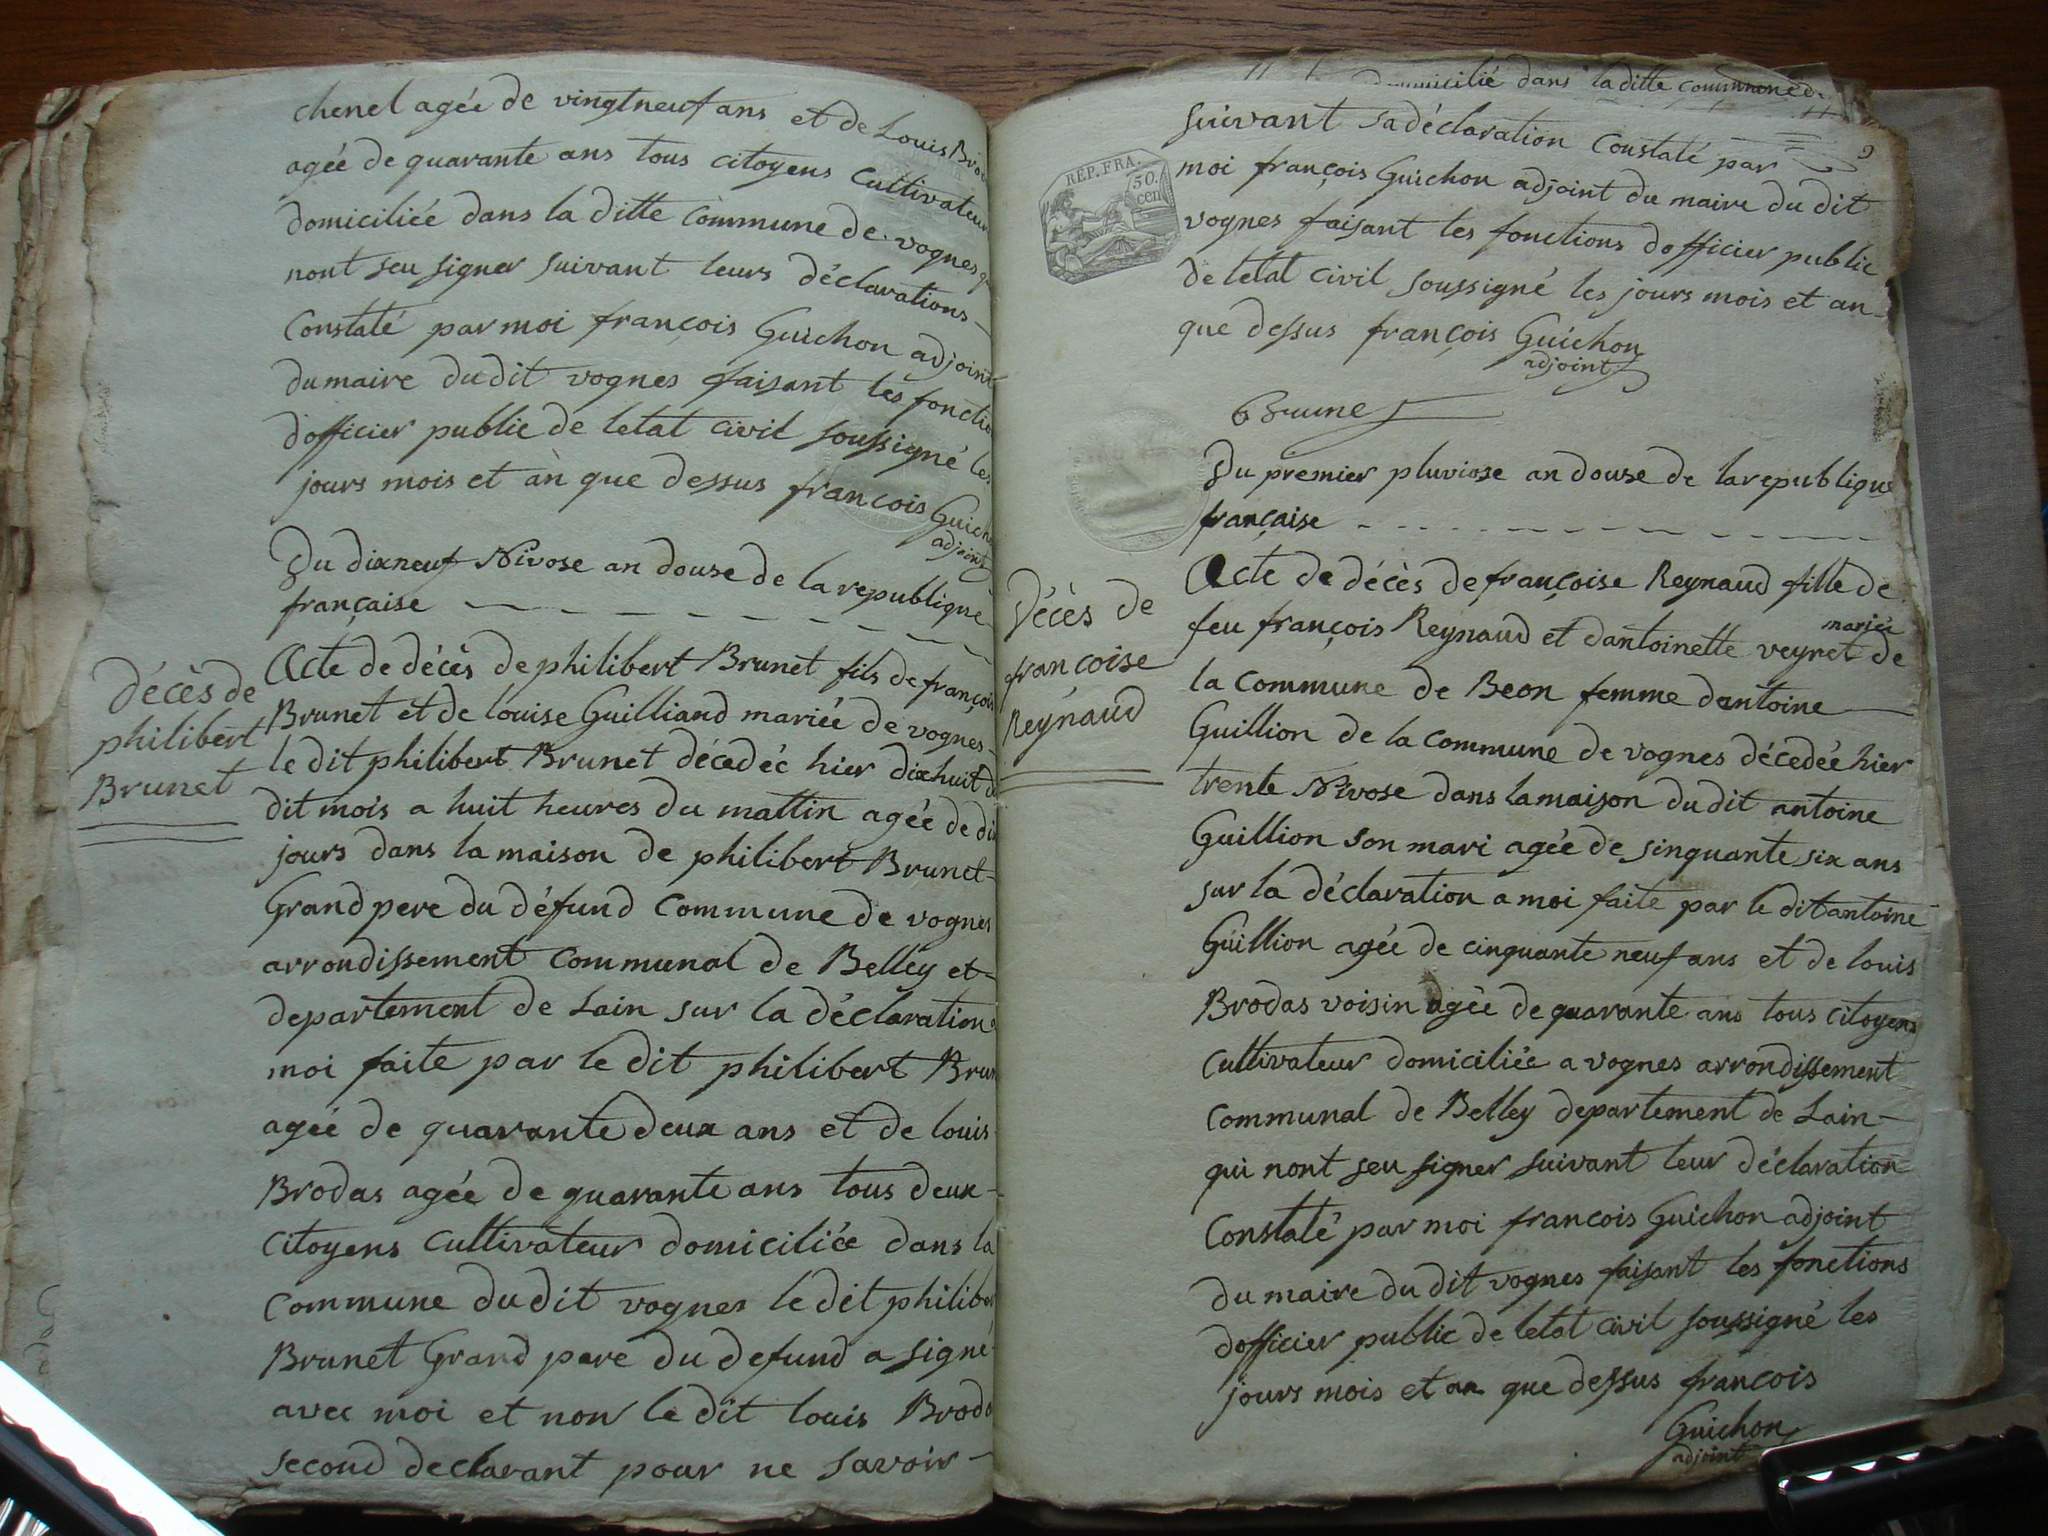 chenel agée de vingtneuf ans et de Louis
agée de quarante ans tous citoyens Cultivateur
domiciliée dans la ditte Commune de vognes
nont seu signer suivant leurs déclarations
Constaté par moi françois Guichon adjoint
du maire du dit vognes faisant les fonctio
dofficier public de letat civil soussigné les
jours mois et an que dessus francois Guich
adjoint
Du dixneuf Nivose an douse de la republique
française
décès de
philibert
Brunet
Acte de décès de philibert Brunet fils de françois
Brunet et de louise Guilliand mariée de vognes
le dit philibert Brunet décedéé hier dixhuit du
dit mois a huit heures du mattin agée de dix
jours dans la maison de philibert Brunet
Grand pere du défund Commune de vognes
arrondissement Communal de Belley et
departement de Lain sur la déclaration a
moi faite par le dit philibert Brun
agée de quarante deux ans et de louis
Brodas agée de quarante ans tous deux
Citoyens Cultivateur domiciliée dans la
Commune du dit vognes le dit philiber
Brunet Grand pere du defund a signé
avec moi et non le dit louis Broda
second declarant pour ne savoir
domicilié dans la ditte commune
REP. FRA.
50.
cen
9
suivant sa déclaration Constaté par
moi françois Guichon adjoint du maire du dit
vognes faisant les fonctions dofficier public
de letat civil soussigné les jours mois et an
que dessus françois Guichon
adjoint
Du premier pluviose an douse de la republique
française
Décès de
francoise
Reynaud
Acte de décès de françoise Reynaud fille de
feu françois Reynaud et dantoinette veyret mariée de
la Commune de Beon femme dantoine
Guillion de la Commune de vognes décedéé hier
trente Nivose dans la maison du dit antoine
Guillion son mari agée de sinquante six ans
sur la déclaration a moi faite par le dit antoine
Guillion agée de cinquante neuf ans et de louis
Brodas voisin agée de quarante ans tous citoyens
Cultivateur domiciliée a vognes arrondissement
Communal de Belley departement de Lain
qui nont seu signer suivant leur déclaration
Constaté par moi francois Guichon adjoint
du maire du dit vognes faisant les fonctions
dofficier public de letat civil soussigné les
jours mois et an que dessus francois
Guichon
adjoint